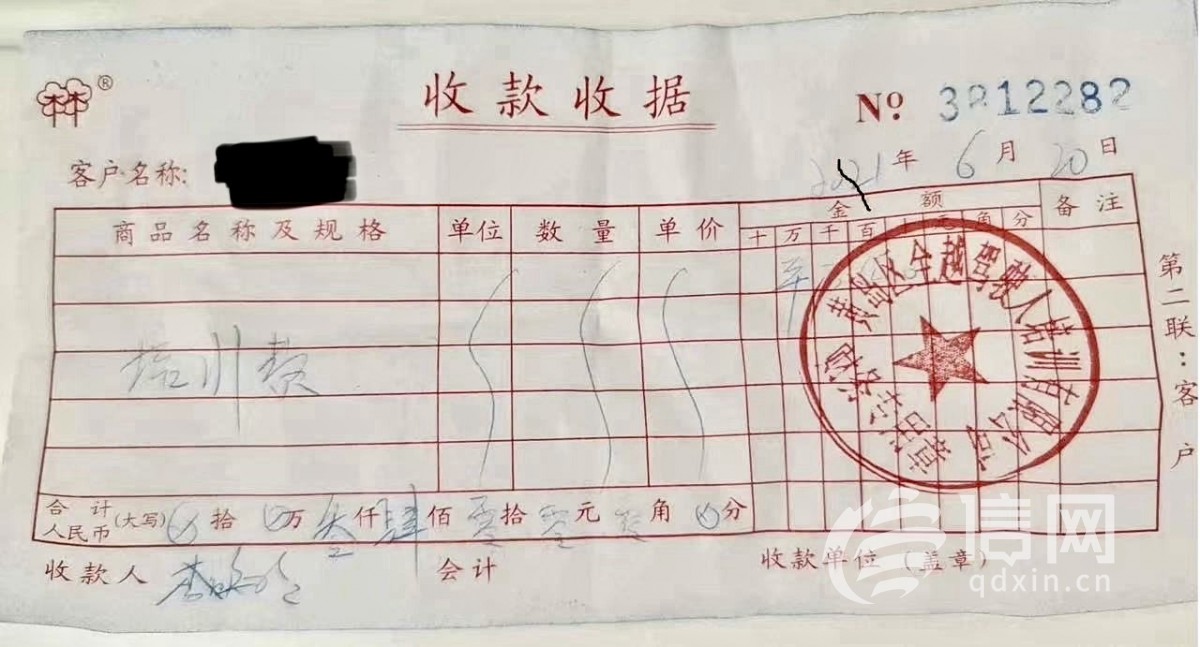 林林 ®
收款收据
№ 3812282
客户名称:
2021年6月20日
商品名称及规格 单位 数量 单价 金额 备注
十 万 千 百 十 元 角 分
培训费
合计人民币(大写) ⊗拾⊗万叁仟肆佰零拾零元零角⊗分
收款人 会计 收款单位(盖章)
第二联:客户
黄岛区全越驾驶人培训有限公司
信网
qdxin.cn